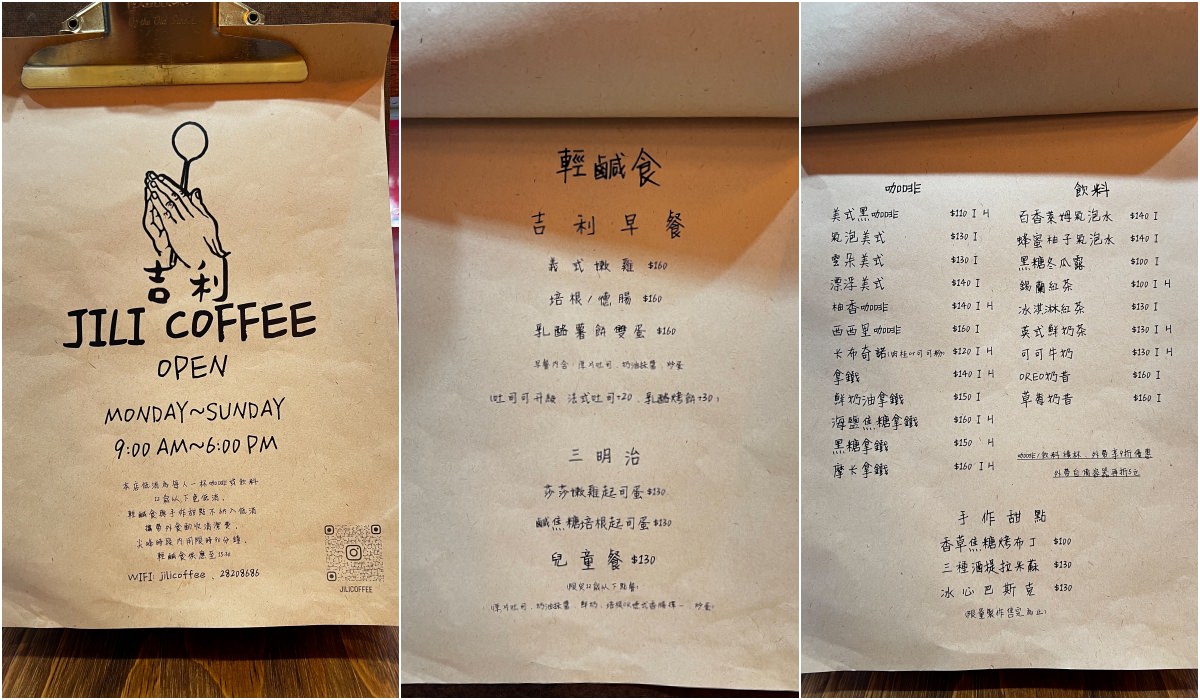 吉利
JILI COFFEE
OPEN
MONDAY~SUNDAY
9:00 AM~6:00 PM
本店低消為每人一杯咖啡或飲料
12歲以下免低消。
輕鹹食與手作甜點不納入低消
攜帶外食酌收清潔費。
尖峰時段內用限時90分鐘。
輕鹹食供應至15:30
WIFI: jilicoffee . 28208686
JILICOFFEE
輕鹹食
吉利早餐
義式嫩雞 $160
培根/德腸 $160
乳酪薯餅雙蛋 $160
早餐內含:厚片吐司、奶油抹醬、炒蛋
(吐司可升級 法式吐司+20、乳酪烤餅+30)
三明治
莎莎嫩雞起司蛋 $130
鹹焦糖培根起司蛋 $130
兒童餐 $130
(限定12歲以下點餐)
(厚片吐司、奶油抹醬、鮮奶、培根or德式香腸擇一、炒蛋)
咖啡
美式黑咖啡 $110 I H
氣泡美式 $130 I
雲朵美式 $130 I
漂浮美式 $140 I
柚香咖啡 $140 I H
西西里咖啡 $160 I
卡布奇諾(肉桂or可可粉) $120 I H
拿鐵 $140 I H
鮮奶油拿鐵 $150 I
海鹽焦糖拿鐵 $160 I
黑糖拿鐵 $150 H
摩卡拿鐵 $160 I H
飲料
百香萊姆氣泡水 $140 I
蜂蜜柚子氣泡水 $140 I
黑糖冬瓜露 $100 I
錫蘭紅茶 $100 I H
冰淇淋紅茶 $130 I
英式鮮奶茶 $130 I H
可可牛奶 $130 I H
OREO奶昔 $160 I
草莓奶昔 $160 I
咖啡/飲料續杯、外帶享9折優惠
外帶自備容器再折5元
手作甜點
香草焦糖烤布丁 $100
三種酒提拉米蘇 $130
冰心巴斯克 $130
(限量製作售完為止)